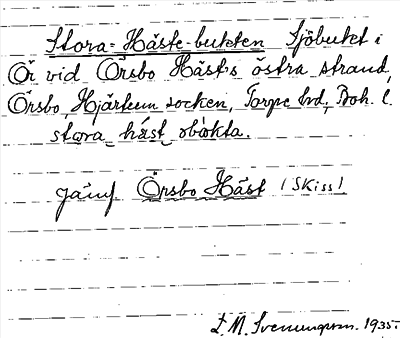 Stora-Häste-bukten Sjöbukt i
Ör vid Örsbo Häst:s östra strand,
Örsbo, Hjärtum socken, Torpe hd, Boh. l.
stora häst
jämf Örsbo Häst (Skiss)
L. M. Svenungsson. 1935.